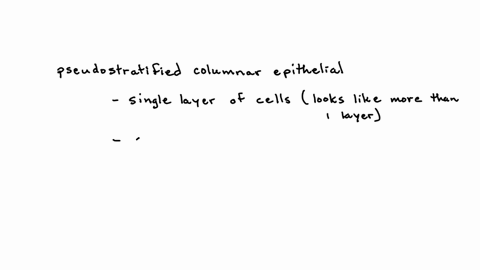 pseudostratified columnar epithelial
- single layer of cells (looks like more than
1 layer)
-